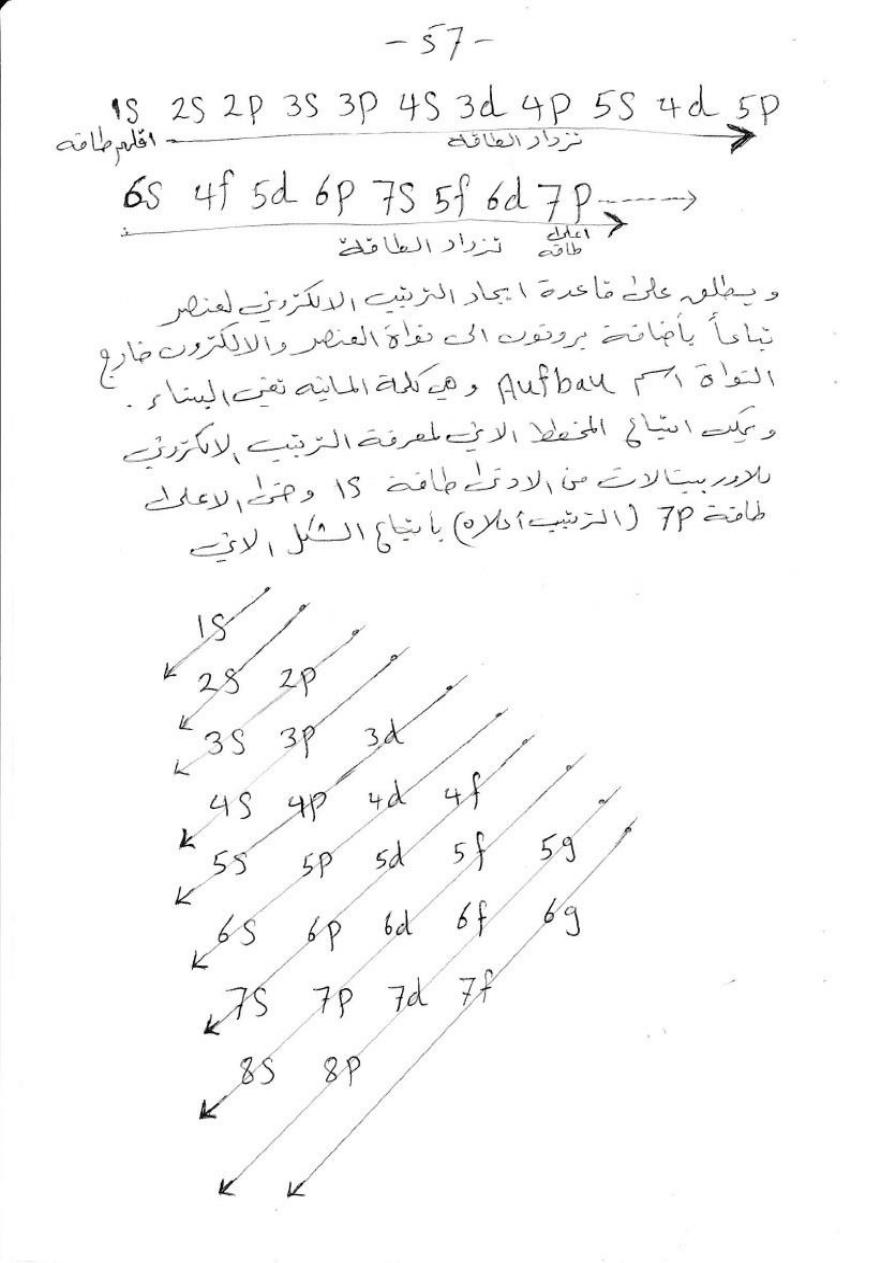 - 57 -
1S 2S 2P 3S 3P 4S 3d 4P 5S 4d 5P
اقلهم طاقه تزداد الطاقة
6S 4f 5d 6P 7S 5f 6d 7P ------>
تزداد الطاقة اعلى طاقه
ويطلق على قاعدة ايجاد الترتيب الالكتروني لعنصر
تباعاً بأضافة بروتون الى نواة العنصر والالكترون خارج
النواة اسم Aufbau وهي كلمة المانيه تعني البناء .
ويمكن اتباع المخطط الاتي لمعرفة الترتيب الالكتروني
للاوربيتالات من الادنى طاقة 1S وحتى الاعلى
طاقة 7P (الترتيب أعلاه) بأتباع الشكل الاتي
1S
2S 2P
3S 3P 3d
4S 4P 4d 4f
5S 5P 5d 5f 5g
6S 6P 6d 6f 6g
7S 7P 7d 7f
8S 8P